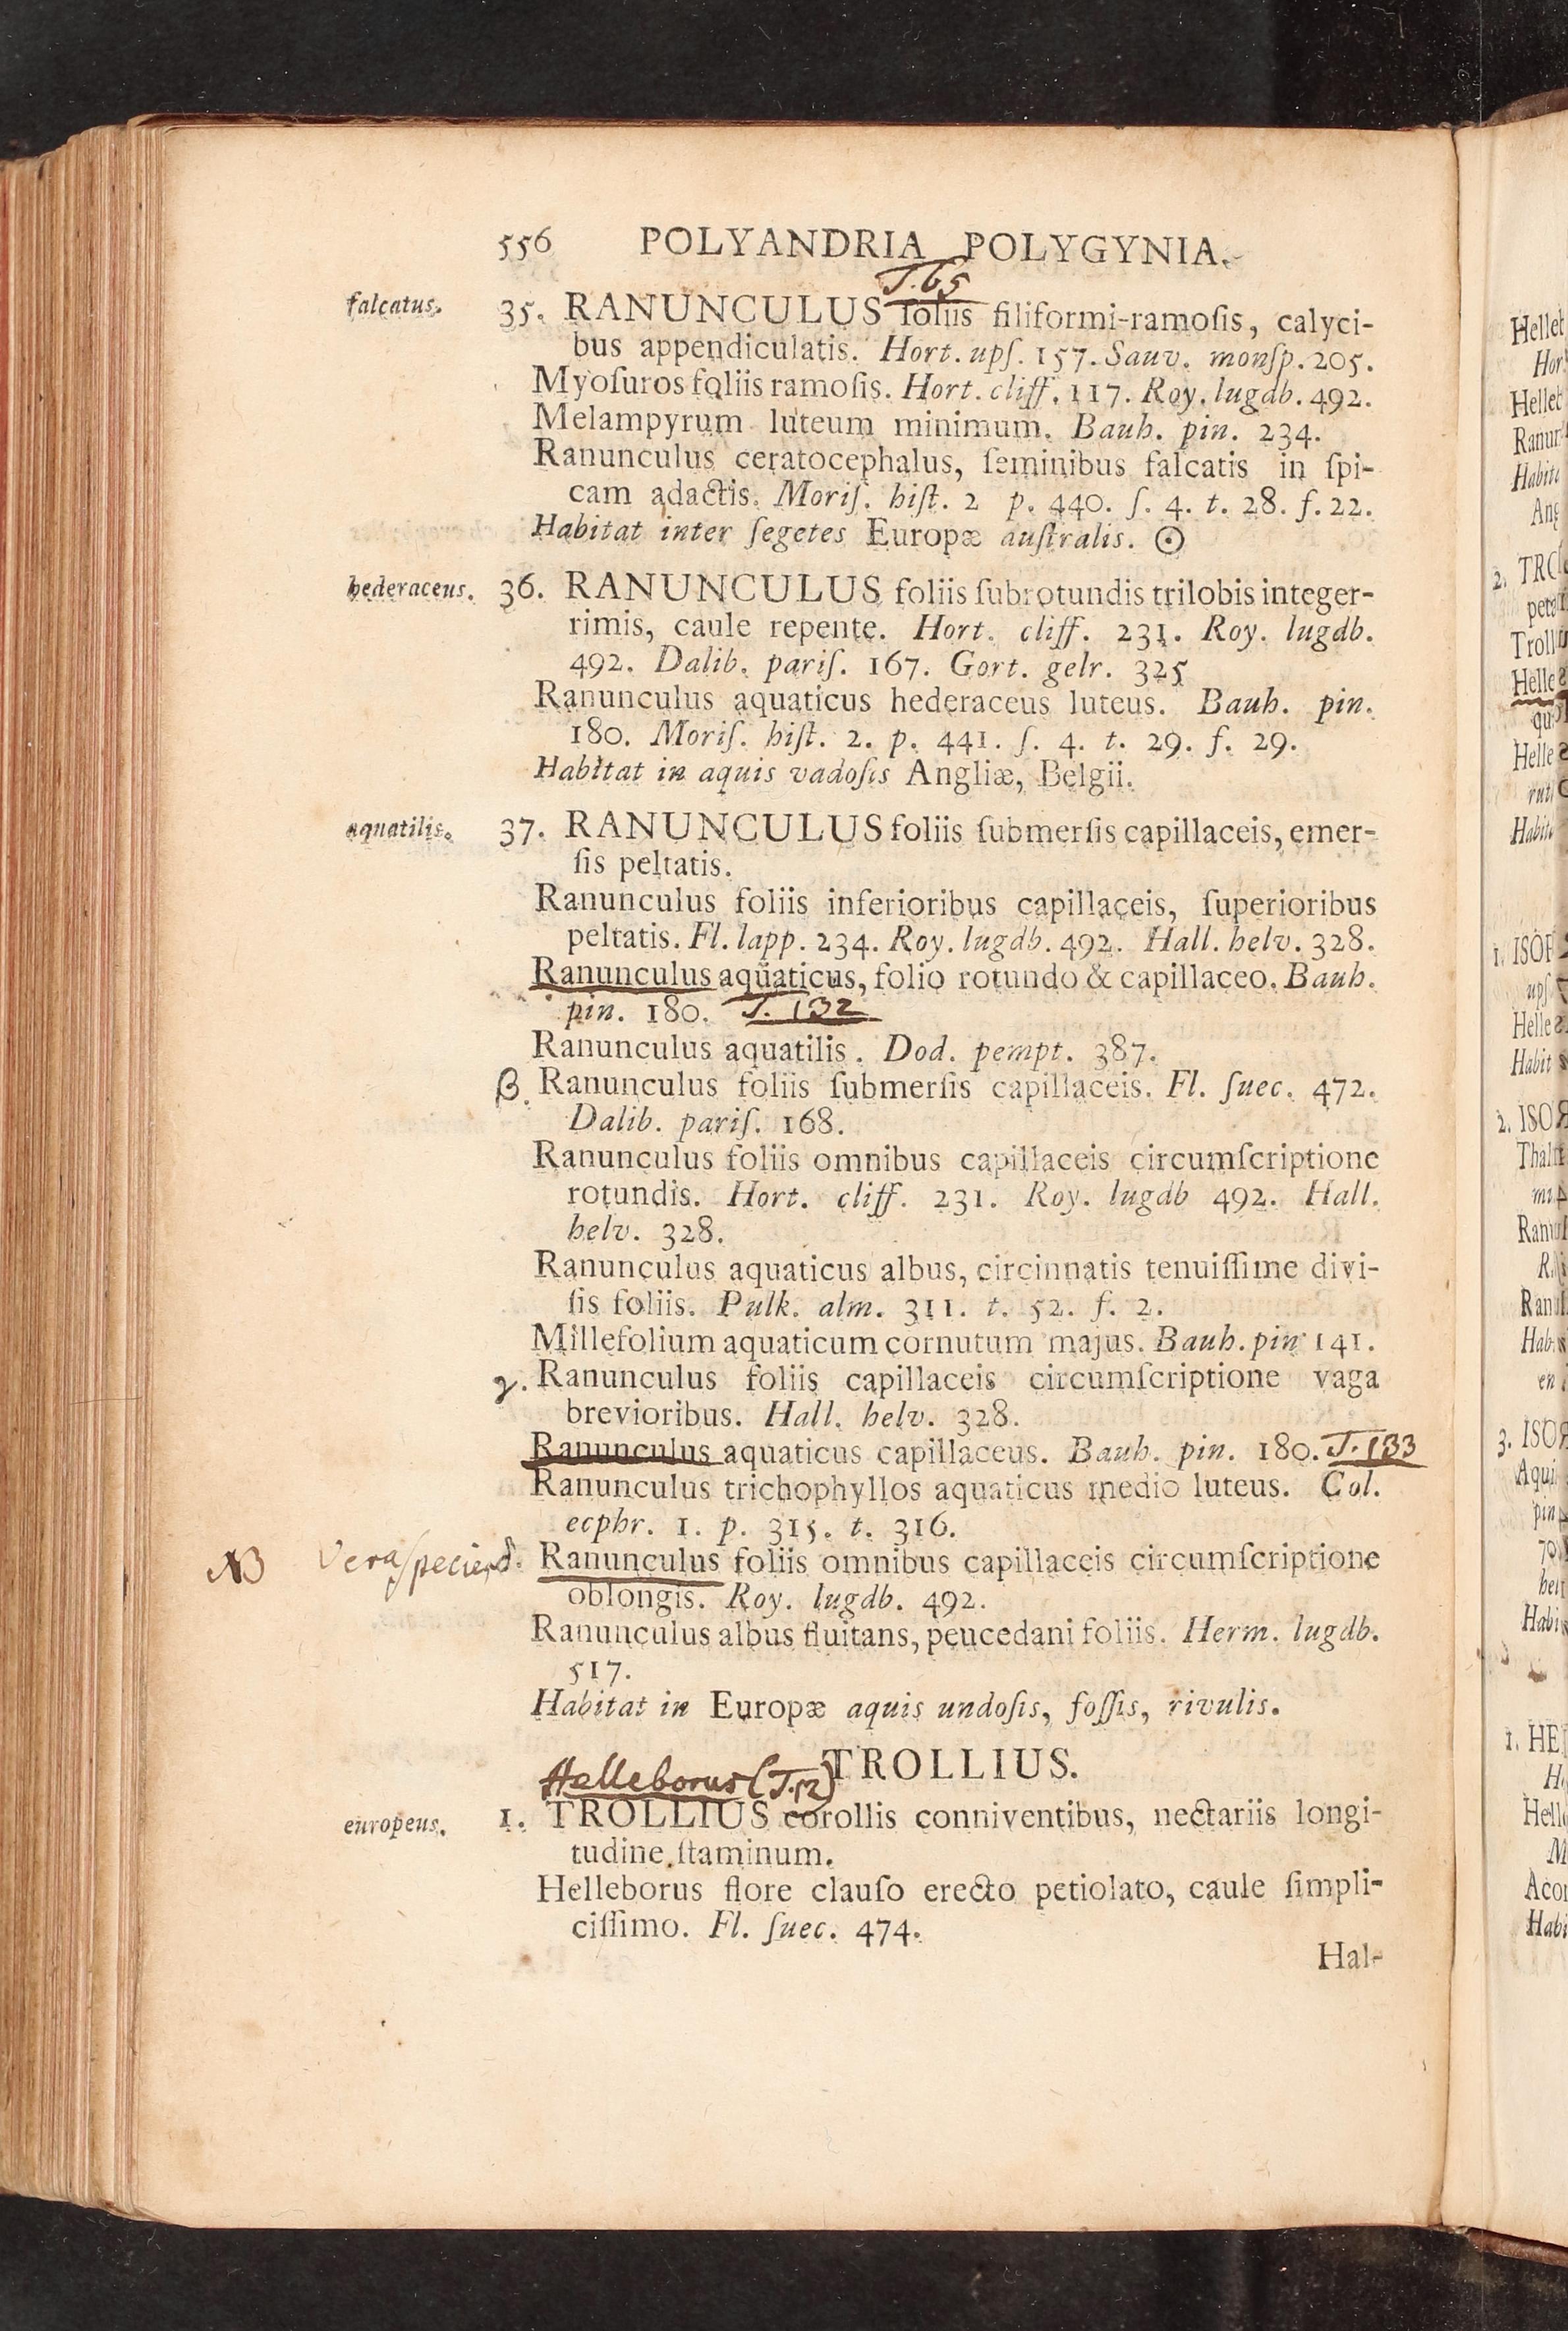 556 POLYANDRIA POLYGYNIA.
T. 65
falcatus. 35. RANUNCULUS foliis filiformi-ramoſis, calyci-
bus appendiculatis. Hort. upſ. 157. Sauv. monſp. 205.
Myoſuros foliis ramoſis. Hort. cliff. 117. Roy. lugdb. 492.
Melampyrum luteum minimum. Bauh. pin. 234.
Ranunculus ceratocephalus, ſeminibus falcatis in ſpi-
cam adactis. Moriſ. hiſt. 2 p. 440. ſ. 4. t. 28. f. 22.
Habitat inter ſegetes Europæ auſtralis. ☉
hederaceus. 36. RANUNCULUS foliis ſubrotundis trilobis integer-
rimis, caule repente. Hort. cliff. 231. Roy. lugdb.
492. Dalib. pariſ. 167. Gort. gelr. 325
Ranunculus aquaticus hederaceus luteus. Bauh. pin.
180. Moriſ. hiſt. 2. p. 441. ſ. 4. t. 29. f. 29.
Habitat in aquis vadoſis Angliæ, Belgii.
aquatilis. 37. RANUNCULUS foliis ſubmerſis capillaceis, emer-
ſis peltatis.
Ranunculus foliis inferioribus capillaceis, ſuperioribus
peltatis. Fl. lapp. 234. Roy. lugdb. 492. Hall. helv. 328.
Ranunculus aquaticus, folio rotundo & capillaceo. Bauh.
pin. 180. T. 132
Ranunculus aquatilis. Dod. pempt. 387.
β. Ranunculus foliis ſubmerſis capillaceis. Fl. ſuec. 472.
Dalib. pariſ. 168.
Ranunculus foliis omnibus capillaceis circumſcriptione
rotundis. Hort. cliff. 231. Roy. lugdb 492. Hall.
helv. 328.
Ranunculus aquaticus albus, circinnatis tenuiſſime divi-
ſis foliis. Pulk. alm. 311. t. 52. f. 2.
Millefolium aquaticum cornutum majus. Bauh. pin 141.
γ. Ranunculus foliis capillaceis circumſcriptione vaga
brevioribus. Hall. helv. 328.
Ranunculus aquaticus capillaceus. Bauh. pin. 180. T. 133
Ranunculus trichophyllos aquaticus medio luteus. Col.
ecphr. 1. p. 315. t. 316.
NB Vera ſpecies δ. Ranunculus foliis omnibus capillaceis circumſcriptione
oblongis. Roy. lugdb. 492.
Ranunculus albus fluitans, peucedani foliis. Herm. lugdb.
517.
Habitat in Europæ aquis undoſis, foſſis, rivulis.
TROLLIUS.
Helleborus (T. 12)
europeus. 1. TROLLIUS corollis conniventibus, nectariis longi-
tudine ſtaminum.
Helleborus flore clauſo erecto petiolato, caule ſimpli-
ciſſimo. Fl. ſuec. 474.
Hal-